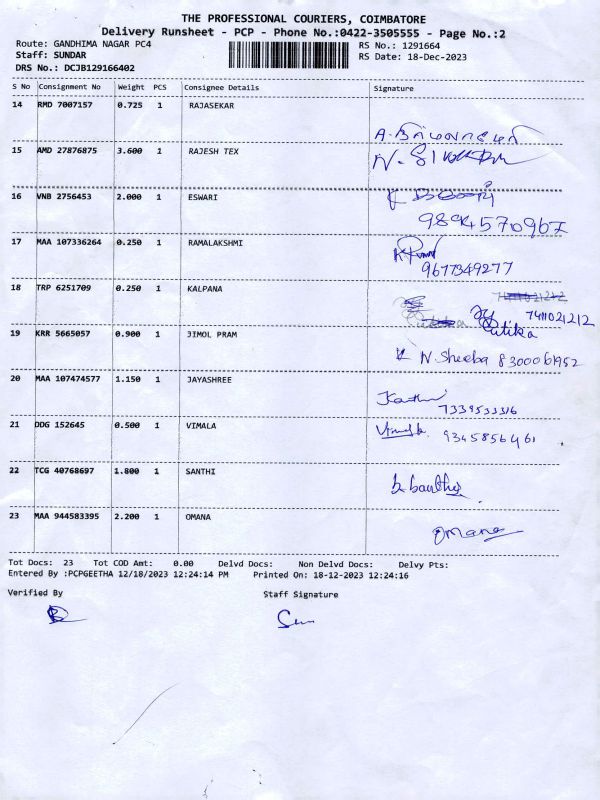 THE PROFESSIONAL COURIERS, COIMBATORE
Delivery Runsheet - PCP - Phone No.:0422-3505555 - Page No.:2
Route: GANDHIMA NAGAR PC4
RS No.: 1291664
Staff: SUNDAR
RS Date: 18-Dec-2023
DRS No.: DCJB129166402
S No Consignment No Weight PCS Consignee Details Signature
14 RMD 7007157 0.725 1 RAJASEKAR
15 AMD 27876875 3.600 1 RAJESH TEX
16 VNB 2756453 2.000 1 ESWARI
9894570967
17 MAA 107336264 0.250 1 RAMALAKSHMI
9677349277
18 TRP 6251709 0.250 1 KALPANA
7411021212
Ritika
19 KRR 5665057 0.900 1 JIMOL PRAM
N. Sheeba 8300061952
20 MAA 107474577 1.150 1 JAYASHREE
7339533316
21 DDG 152645 0.500 1 VIMALA
9345856461
22 TCG 40768697 1.800 1 SANTHI
23 MAA 944583395 2.200 1 OMANA
Omana
Tot Docs: 23 Tot COD Amt: 0.00 Delvd Docs: Non Delvd Docs: Delvy Pts:
Entered By :PCPGEETHA 12/18/2023 12:24:14 PM Printed On: 18-12-2023 12:24:16
Verified By Staff Signature